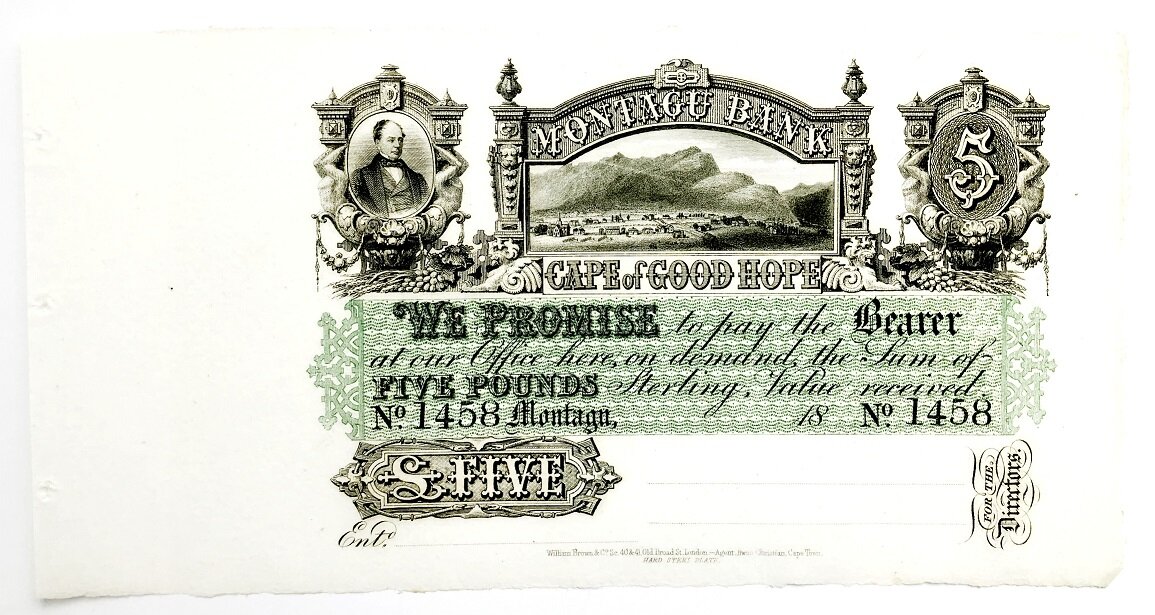 MONTAGU BANK
5
CAPE of GOOD HOPE
WE PROMISE to pay the Bearer
at our Office here, on demand, the Sum of
FIVE POUNDS Sterling, Value received.
No. 1458 Montagu, 18 No. 1458
£ FIVE
FOR THE
Directors.
Entd.
William Brown & Co. Sc. 40 & 41, Old Broad St. London.—Agent, Christian, Cape Town.
HARD STEEL PLATE.